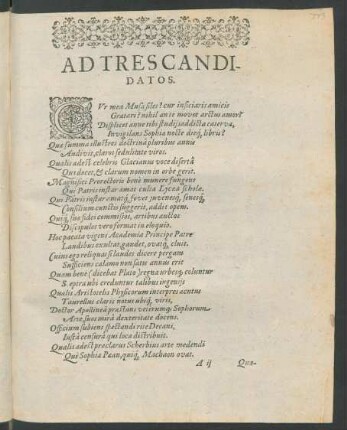 AD TRES CANDI-
DATOS.
CVr mea Musa siles? cur inficiaris amicis
Gratari? nihil an te movet arctus amor?
Displicet anne tibi studijs addicta caterva,
Pervigilans Sophiæ nocte dieq́, libris?
Quæ summa illustres doctrina pluribus annis
Audivit, claros sedulitate viros.
Qualis adest celebris Glacianus voce disertâ
Qui docet, & clarum nomen in orbe gerit.
Magnificus Prorectoris bene munere fungens
Qui Patris instar amat culta Lycæa scholæ.
Qui Patris instar amatq́, fovet juvenesq́, senesq́,
Consilium cunctis suggerit, addit opem.
Quiq́, suæ fidei commissos, artibus auctos
Discipulos verò format in eloquio.
Hoc pacato vigens Academia Principe Patre
Laudibus exultat, gaudet, ovatq́, cluit.
Cujus ego reliquas si laudes dicere pergam
Sufficiens calamus non satis annus erit
Quam bene (dicebat Plato) regna urbesq́, coluntur
Si opera ubi creduntur talibus ingenijs
Qualis Aristotelis Physicorum interpres acutus
Taurellus claris notus ubiq́, viris,
Doctor Apollineâ præstans veterumq́, Sophorum
Arte suos mirâ dexteritate docens.
Officium subiens spectandi rite Decani,
Justâ censurâ qui loca distribuit.
Qualis adest præclarus Scherbius arte medendi
Qui Sophiæ Pæan, quiq́, Machaon ovat.
A ij
Quæ-